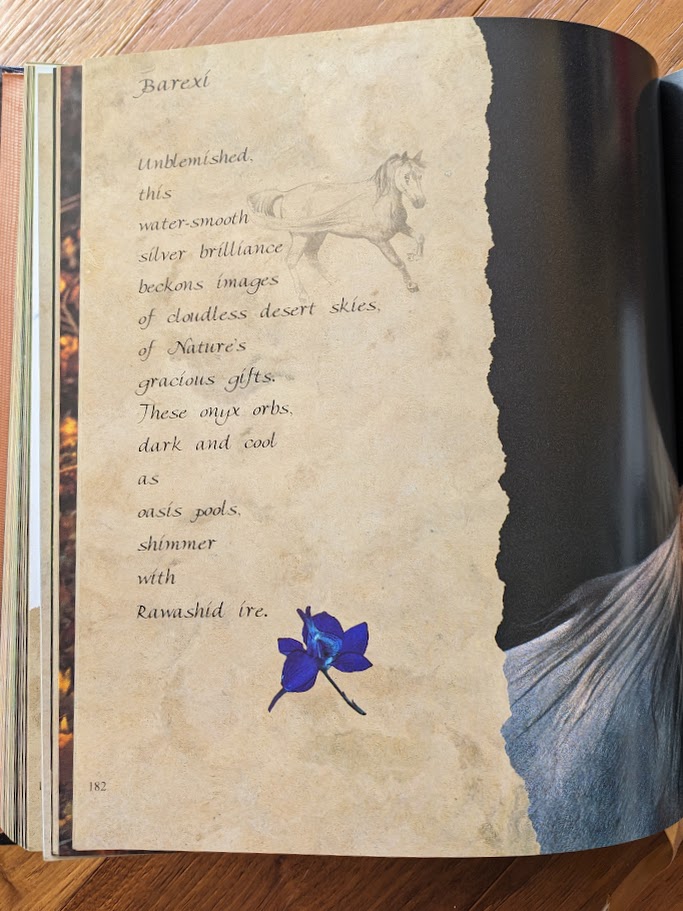 Barexi
Unblemished,
this
water-smooth
silver brilliance
beckons images
of cloudless desert skies,
of Nature's
gracious gifts.
These onyx orbs,
dark and cool
as
oasis pools,
shimmer
with
Rawashid ire.
182